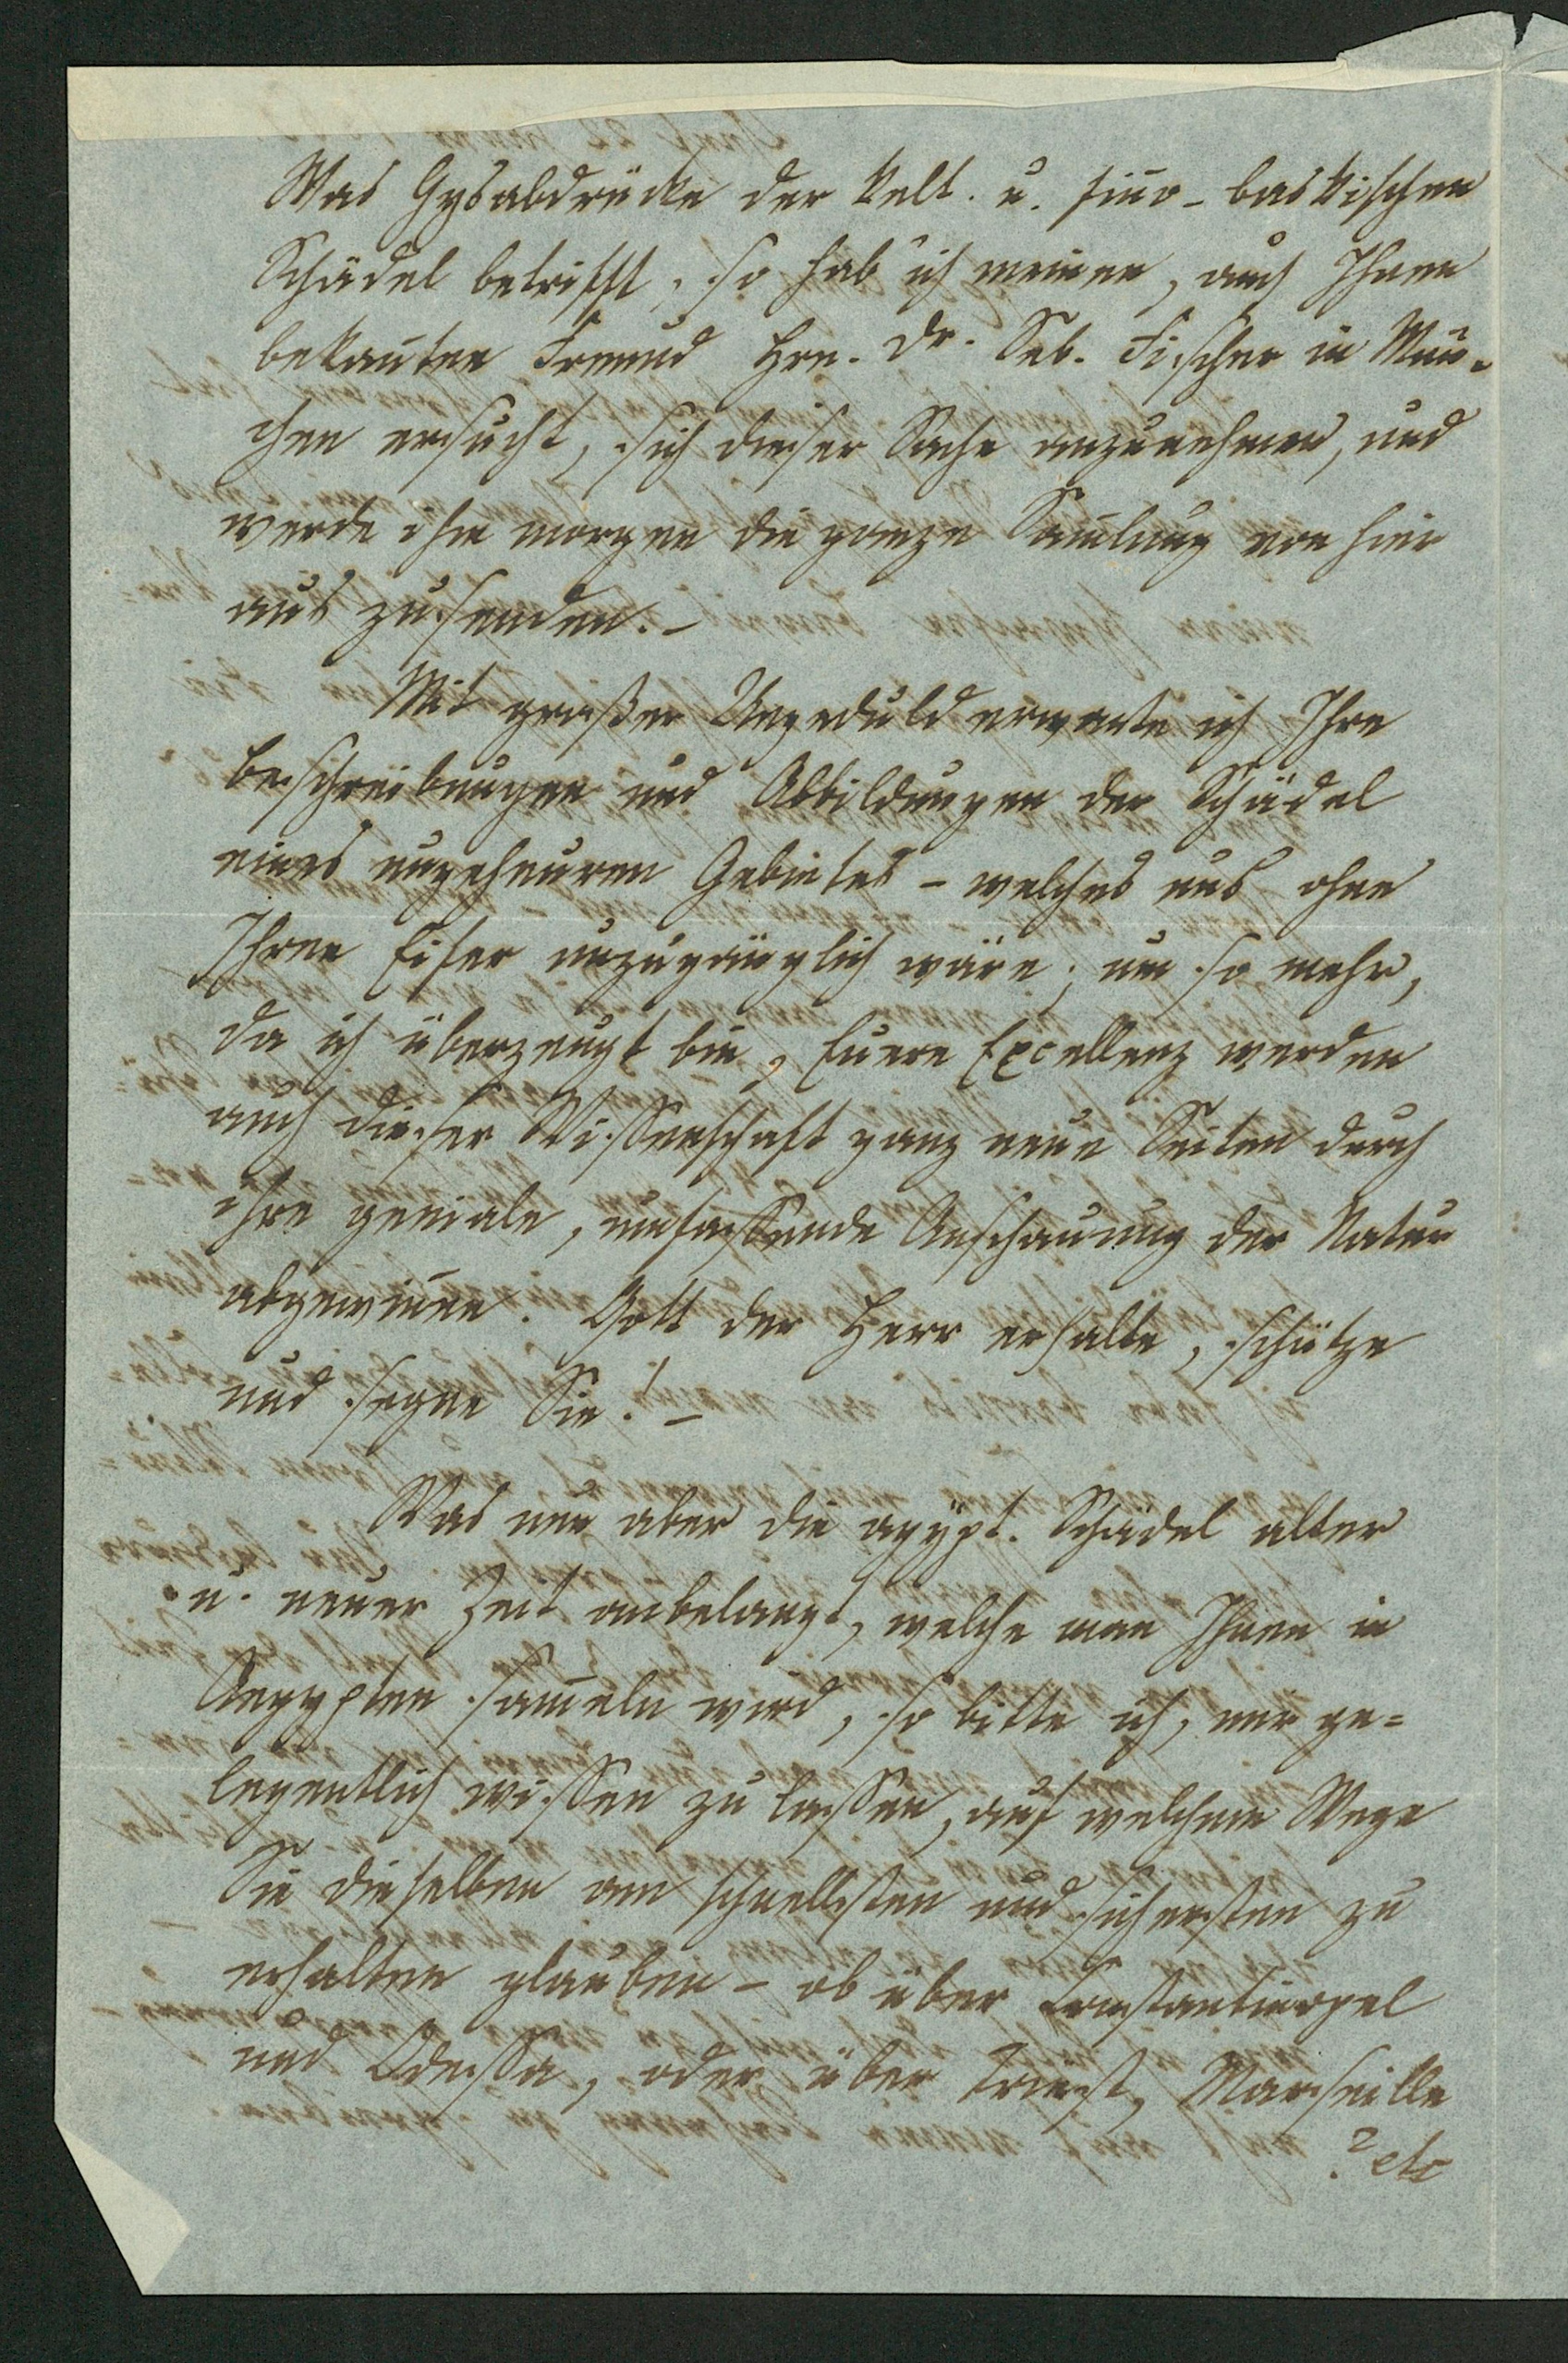 Was Gypsabdrücke der kelt. u. fin̄o-baskischen
Schädel betrifft, so hab' ich meinen, auch Ihnen
bekan̄ten Freund Hrn. Dr. Seb. Fischer in Mün-
chen ersucht, sich dieser Sache anzunehmen, und
werde ihm morgen die ganze Sam̄lung von hier
aus zusenden. –
Mit großer Ungeduld erwarte ich Ihre
Beschreibungen und Abbildungen der Schädel
eines ungeheuren Gebietes – welches uns ohne
Ihren Eifer unzugänglich wäre; um so mehr,
da ich überzeugt bin, Euere Excellenz werden
auch dieser Wissenschaft ganz neue Seiten durch
ihre geniale, umfassende Anschauung der Natur
abgewin̄en. Gott der Herr erhalte, schütze
und segne Sie! –
Was nun aber die ägypt. Schädel alter
u. neuer Zeit anbelangt, welche man Ihnen in
Aegypten sam̄eln wird, so bitte ich, mir ge=
legentlich wissen zu lassen, auf welchem Wege
Sie dieselben am schnellsten und sichersten zu
erhalten glauben – ob über Constantinopel
und Odessa, oder über Triest, Marseille
etc?